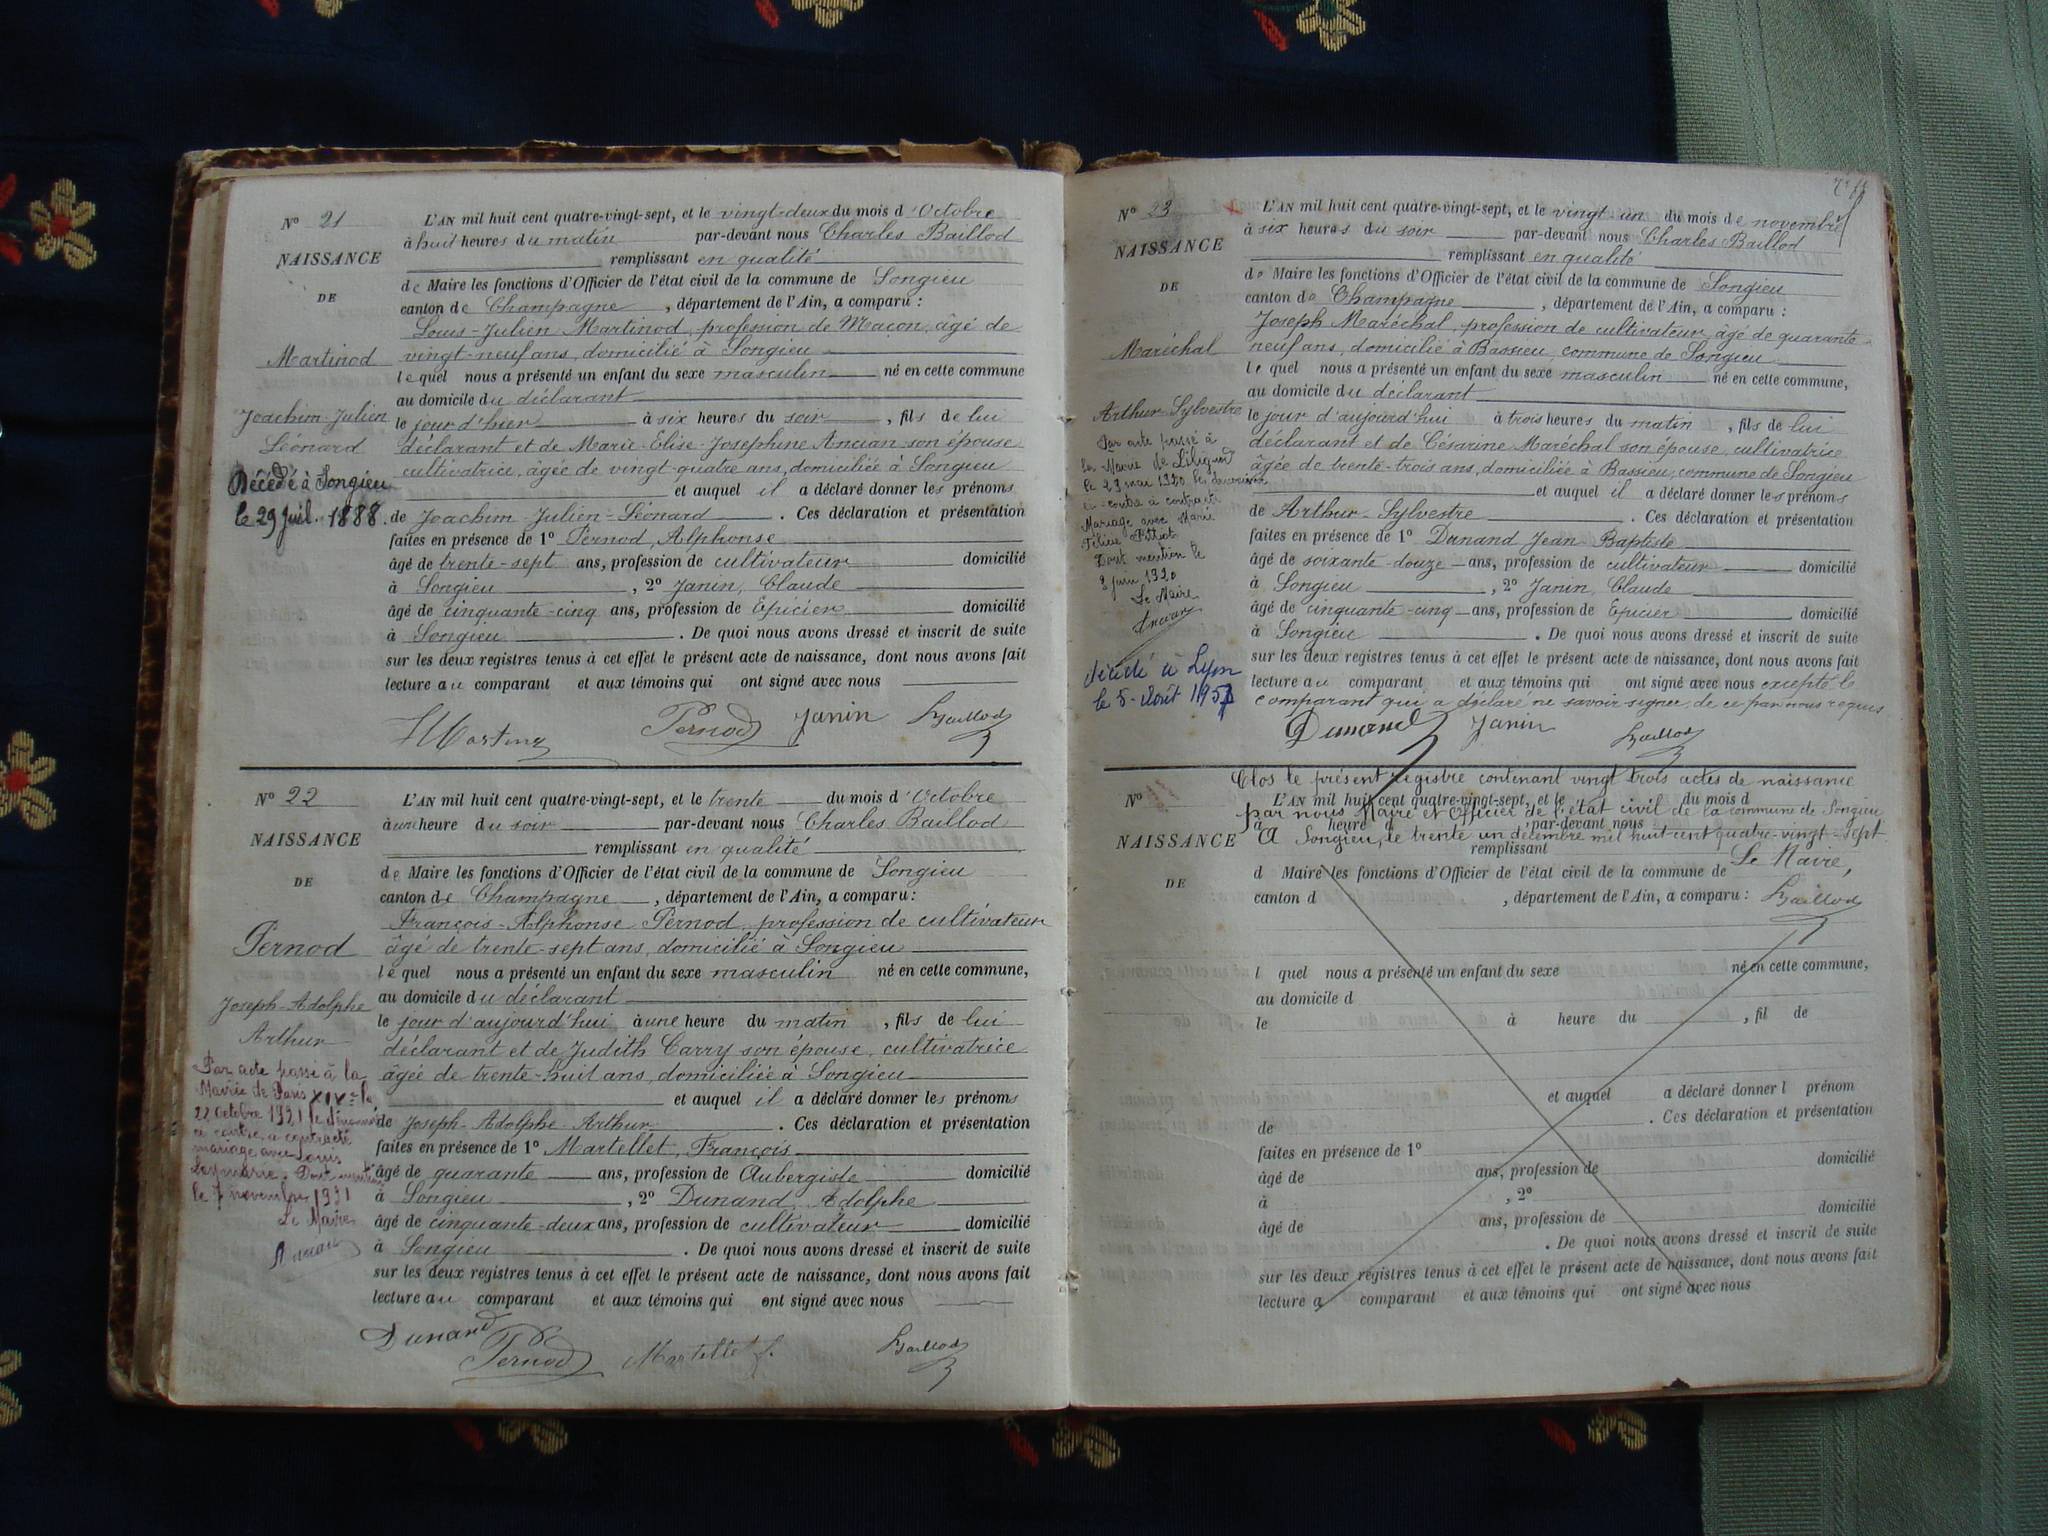 N° 21
NAISSANCE
DE
Martinod
Joachim-Julien
Léonard
Décédé à Songieu
le 29 Juil. 1888.
L'AN mil huit cent quatre-vingt-sept, et le vingt-deux du mois d'Octobre
à huit heures du matin par-devant nous Charles Baillod
remplissant en qualité
de Maire les fonctions d'Officier de l'état civil de la commune de Songieu
canton de Champagne, département de l'Ain, a comparu :
Louis-Julien Martinod, profession de Macon, âgé de
vingt-neuf ans, domicilié à Songieu
lequel nous a présenté un enfant du sexe masculin né en cette commune
au domicile du déclarant
le jour d'hier à six heures du soir, fils de lui
déclarant et de Marie-Elise-Josephine Ancian son épouse
cultivatrice, âgée de vingt-quatre ans, domiciliée à Songieu
et auquel il a déclaré donner les prénoms
de Joachim-Julien-Léonard. Ces déclaration et présentation
faites en présence de 1° Pernod, Alphonse
âgé de trente-sept ans, profession de cultivateur domicilié
à Songieu, 2° Janin, Claude
âgé de cinquante-cinq ans, profession de Epicier domicilié
à Songieu. De quoi nous avons dressé et inscrit de suite
sur les deux registres tenus à cet effet le présent acte de naissance, dont nous avons fait
lecture au comparant et aux témoins qui ont signé avec nous
Pernod Janin Baillod
N° 22
NAISSANCE
DE
Pernod
Joseph-Adolphe
Arthur
Par acte passé à la
Mairie de Paris XIVe le
22 octobre 1921 le dénommé
ci contre a contracté
mariage avec Louis
Leymarie. Dont mention
le 7 novembre 1921
Le Maire
Ancian
L'AN mil huit cent quatre-vingt-sept, et le trente du mois d'Octobre
à une heure du soir par-devant nous Charles Baillod
remplissant en qualité
de Maire les fonctions d'Officier de l'état civil de la commune de Songieu
canton de Champagne, département de l'Ain, a comparu:
François-Alphonse Pernod, profession de cultivateur
âgé de trente-sept ans, domicilié à Songieu
lequel nous a présenté un enfant du sexe masculin né en cette commune,
au domicile du déclarant
le jour d'aujourd'hui à une heure du matin, fils de lui
déclarant et de Judith Carry son épouse, cultivatrice
âgée de trente-huit ans, domiciliée à Songieu
et auquel il a déclaré donner les prénoms
de Joseph-Adolphe Arthur. Ces déclaration et présentation
faites en présence de 1° Martellet, François
âgé de quarante ans, profession de Aubergiste domicilié
à Songieu, 2° Dunand, Adolphe
âgé de cinquante-deux ans, profession de cultivateur domicilié
à Songieu. De quoi nous avons dressé et inscrit de suite
sur les deux registres tenus à cet effet le présent acte de naissance, dont nous avons fait
lecture au comparant et aux témoins qui ont signé avec nous
Dunand Pernod Martellet f. Baillod
N° 23
NAISSANCE
DE
Maréchal
Arthur-Sylvestre
Par acte passé à
la Mairie de
le 29 mai 1920 le dénommé
ci-contre a contracté
Mariage avec Marie
Félicie
Dont mention le
8 juin 1920
Le Maire
Ancian
décédé à Lyon
le 5 Août 1957
L'AN mil huit cent quatre-vingt-sept, et le vingt-un du mois de novembre
à six heures du soir par-devant nous Charles Baillod
remplissant en qualité
de Maire les fonctions d'Officier de l'état civil de la commune de Songieu
canton de Champagne, département de l'Ain, a comparu :
Joseph Maréchal, profession de cultivateur, âgé de quarante-
neuf ans, domicilié à Bassieu, commune de Songieu
lequel nous a présenté un enfant du sexe masculin né en cette commune,
au domicile du déclarant
le jour d'aujourd'hui à trois heures du matin, fils de lui
déclarant et de Césarine Maréchal son épouse, cultivatrice
âgée de trente-trois ans, domiciliée à Bassieu, commune de Songieu
et auquel il a déclaré donner les prénoms
de Arthur-Sylvestre. Ces déclaration et présentation
faites en présence de 1° Dunand Jean-Baptiste
âgé de soixante-douze ans, profession de cultivateur domicilié
à Songieu, 2° Janin, Claude
âgé de cinquante-cinq ans, profession de Epicier domicilié
à Songieu. De quoi nous avons dressé et inscrit de suite
sur les deux registres tenus à cet effet le présent acte de naissance, dont nous avons fait
lecture au comparant et aux témoins qui ont signé avec nous excepté le
comparant qui a déclaré ne savoir signer de ce par nous requis
Dunand Janin Baillod
Clos le présent registre contenant vingt trois actes de naissance
par nous Maire et Officier de l'état civil de la commune de Songieu
A Songieu, le trente un décembre mil huit cent quatre-vingt-sept
Le Maire,
Baillod
N°
NAISSANCE
DE
L'AN mil huit cent quatre-vingt-sept, et le du mois d
à heure d par-devant nous
remplissant
d Maire les fonctions d'Officier de l'état civil de la commune de
canton d , département de l'Ain, a comparu :
l quel nous a présenté un enfant du sexe né en cette commune,
au domicile d
le à heure du , fil de
et auquel a déclaré donner l prénom
de . Ces déclaration et présentation
faites en présence de 1°
âgé de ans, profession de domicilié
à , 2°
âgé de ans, profession de domicilié
à . De quoi nous avons dressé et inscrit de suite
sur les deux registres tenus à cet effet le présent acte de naissance, dont nous avons fait
lecture a comparant et aux témoins qui ont signé avec nous